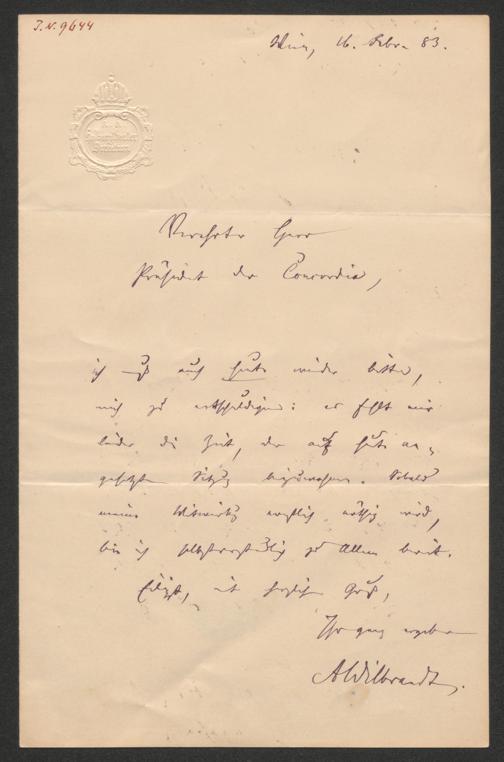 J.N. 9644
Wien, 16. Febr. 83.
K. K.
Hofburgtheater
Direction
Verehrter Herr
Präsident der Concordia,
ich muß auch heute wieder bitten,
mich zu entschuldigen: es fehlt mir
leider die Zeit, der auf heute an-
gesetzten Sitzung beizuwohnen. Sobald
meine Mitwirkung ernstlich nöthig wird,
bin ich selbstverständlich zu Allem bereit.
Eiligst, mit herzlichem Gruß,
Ihr ganz ergebener
AWilbrandt.